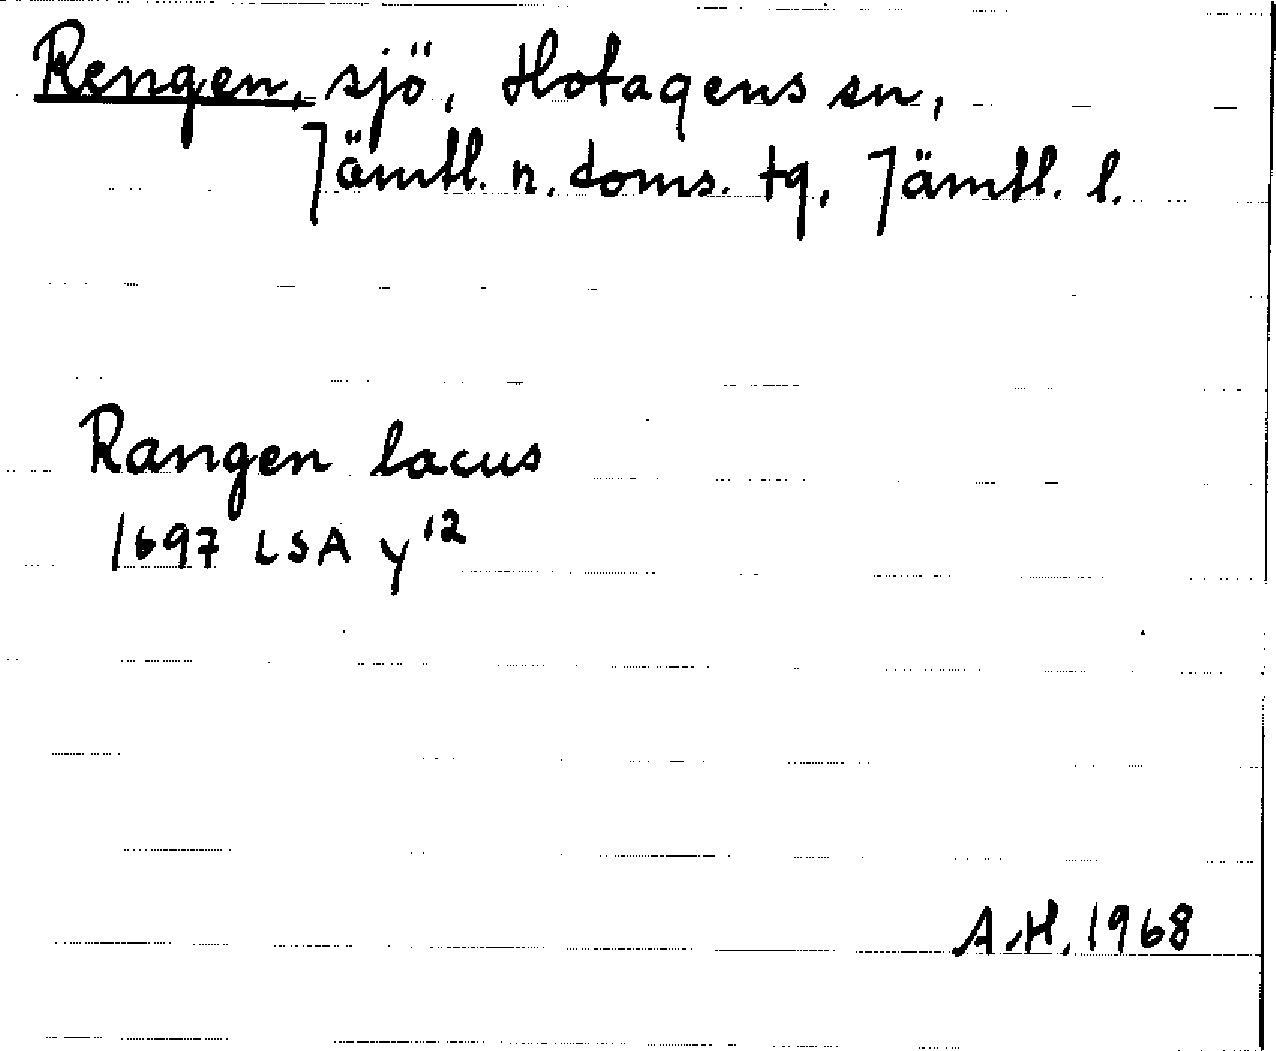 Rengen, sjö, Hotagens sn,
Jämtl. n. doms. tg, Jämtl. l.
Rangen lacus
1697 LSA y¹²
A.H. 1968